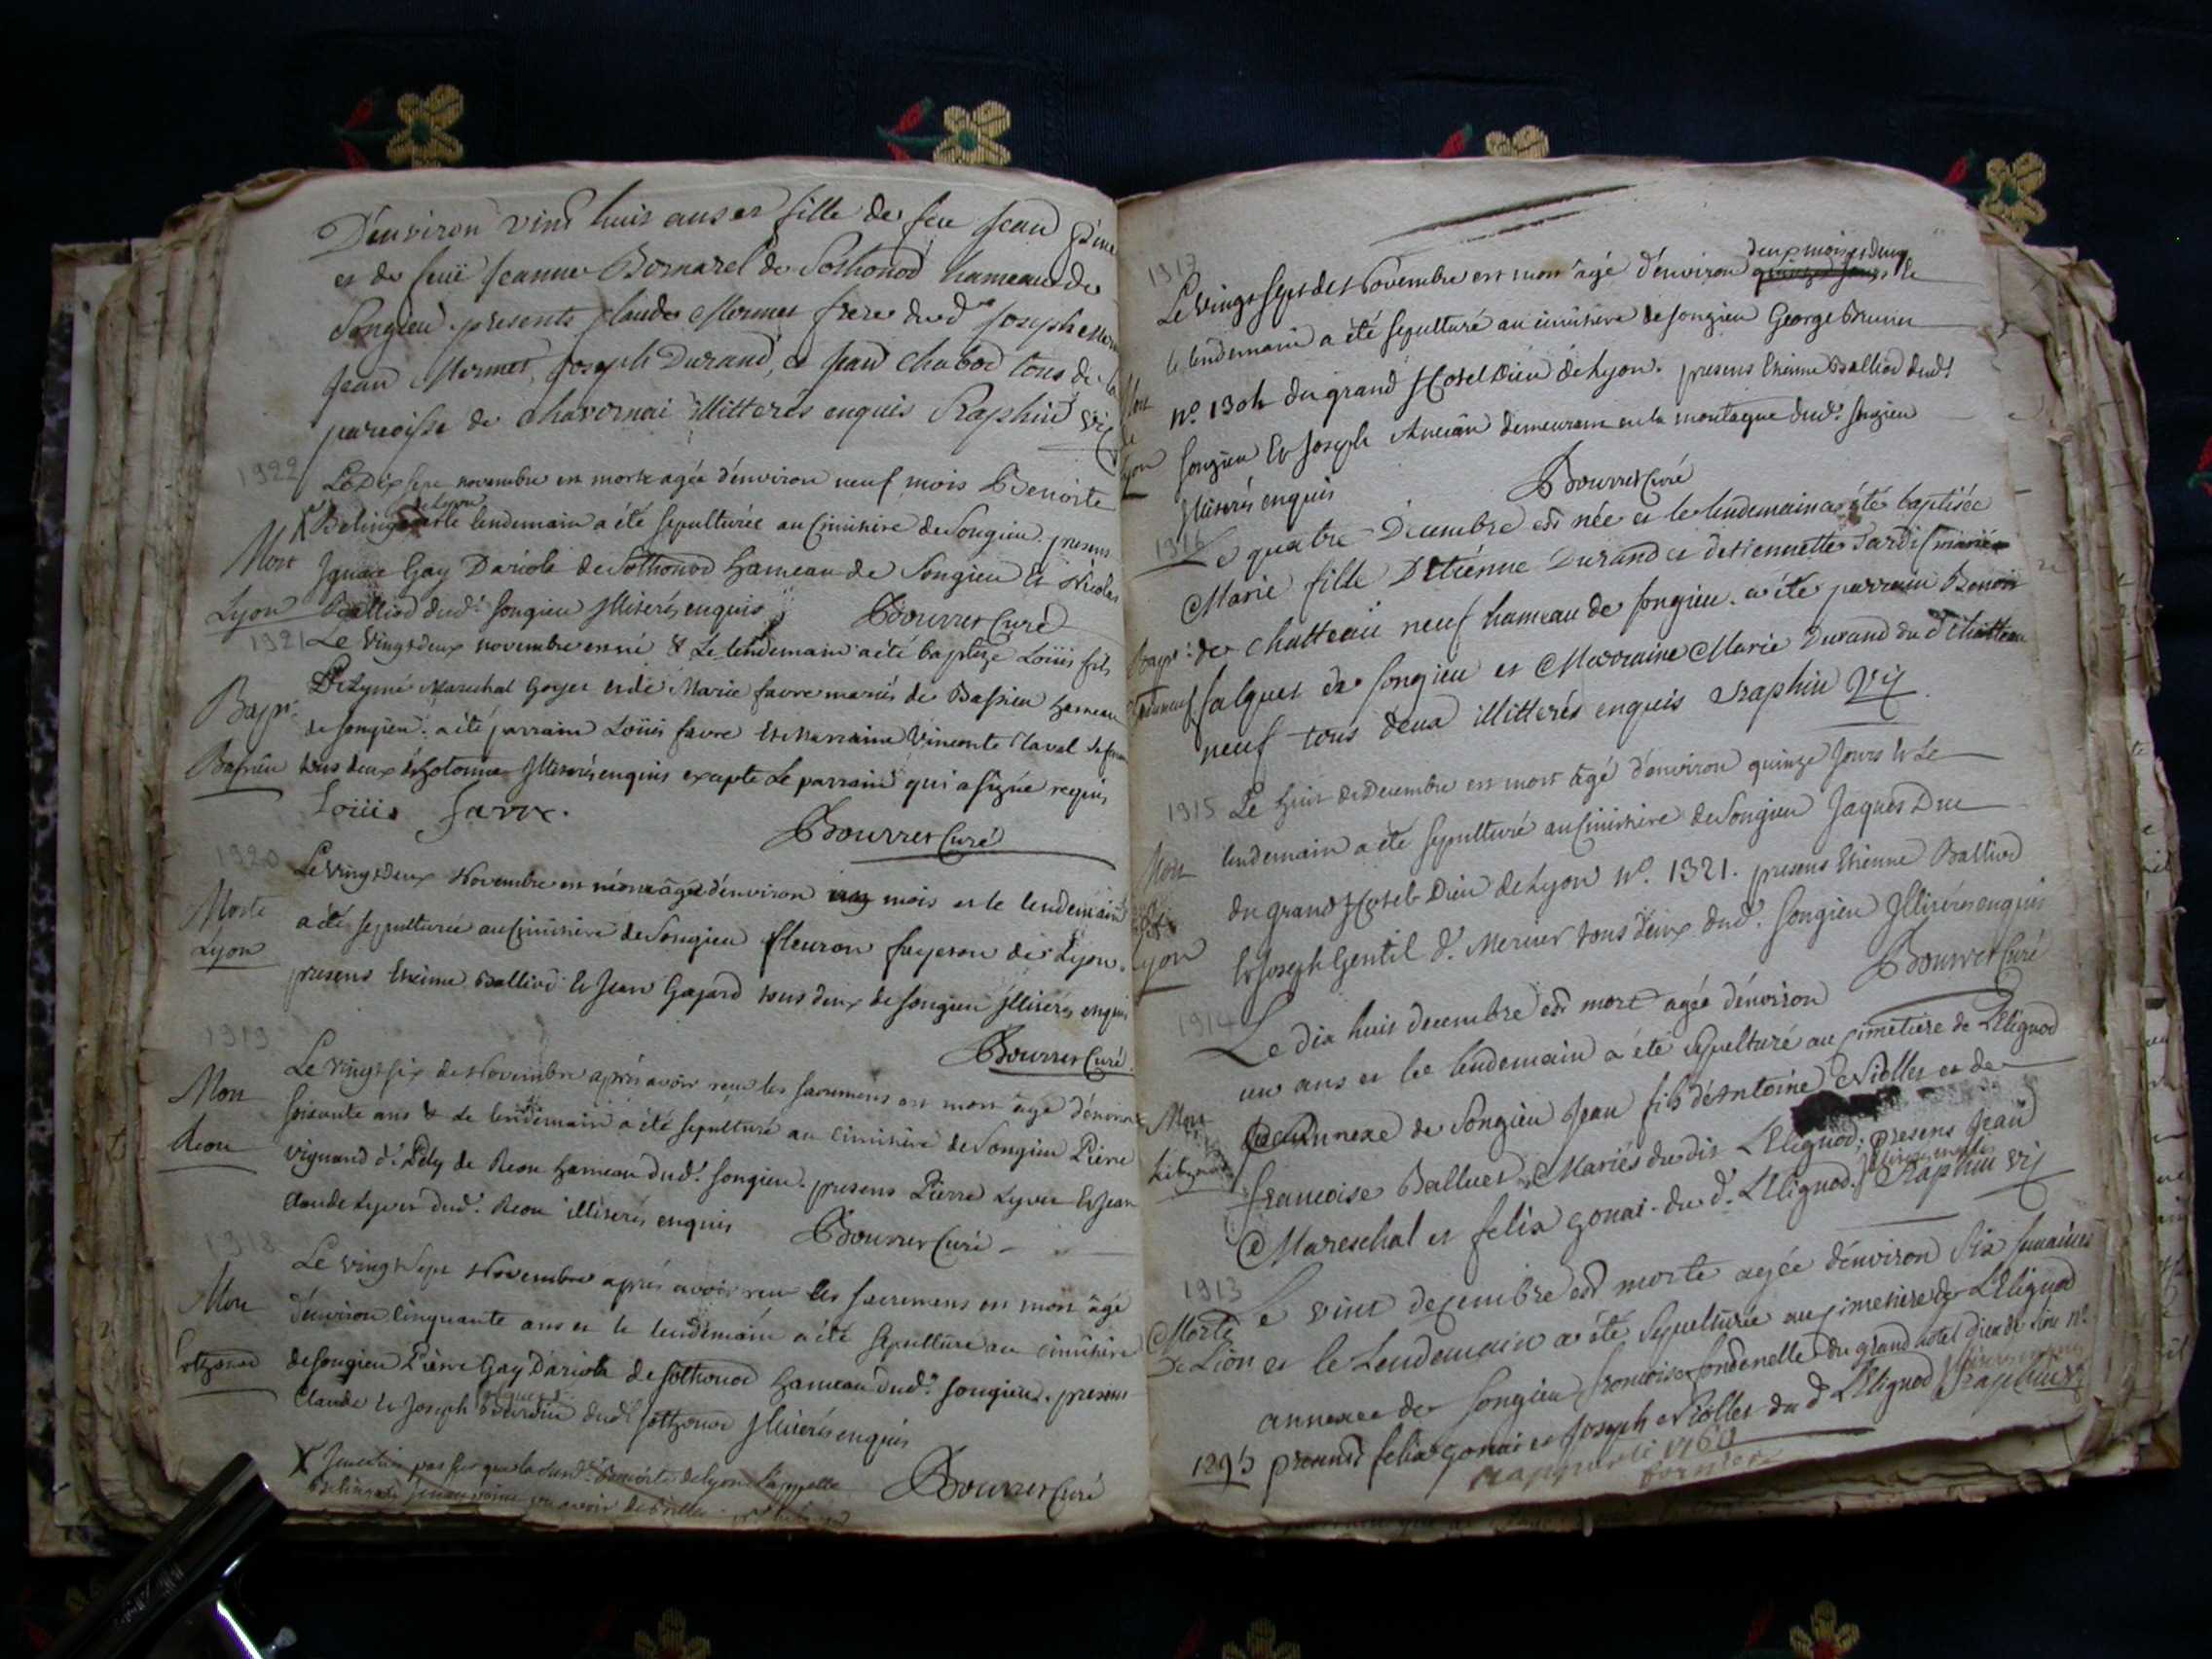 D'environ vint huit ans et fille de feu Jean
et de feüe Jeanne Bornarel de Sothonod hameau de
Songieu presents Claude Mermet frere dud.
Jean Mermet, Joseph Durand, et Jean Chabod tous de la
paroisse de Chavornai illitterés enquis Raphin vic
1922
Le Dix sept novembre est morte agée d'environ neuf mois Benoite
de Lyon
le lendemain a été sepulturée au Cimitière de Songieu. presens
Mort Ignace Gay Dariole de Sothonod hameau de Songieu et Nicolas
Lyon Balliod dud. Songieu Illiterés enquis Bourret Curé
1921 Le vingt deux novembre est né & Le lendemain a été baptizé Loüis fils
Marechal Goyet et de Marie favre mariés de Bassieu hameau
Bapt.
de songieu. a été parrain Loüis favre et Marraine Vincente Claval
Bassieu tous deux d'hotonne Illiterés enquis excepté Le parrain qui a signé requis
Loüis favre.
Bourret Curé
1920 Le vingt deux Novembre est morte agée d'environ mois et le lendemain
Morte a été sepulturée au Cimitière de Songieu fleuron fayeron de Lyon.
Lyon
presens Etienne Balliod et Jean Gajard tous deux de songieu Illiterés enquis
Bourret Curé.
1919
Le vingt six de Novembre aprés avoir reçu les sacremens est mort agé d'environ
Mort soisante ans & le lendemain a été sépulturé au cimitière de Songieu Pierre
Reou vignand d. de Reou hameau dud. songieu. presens Pierre Lyvet et Jean
Claude Lyvet dud. Reou illiterés enquis Bourret Curé
1918
Le vingt sept Novembre aprés avoir reçu les sacremens est mort agé
Mort d'environ cinquante ans et le lendemain a été sepulturé au cimitière
Sothonod de songieu Pierre Gay Dariole de Sothonod hameau dud. songieu. presens
Claude et Joseph dud. sothonod Illiterés enquis
Bourret Curé
1917
deux mois et deux
Le vingt sept de Novembre est mort agé d'environ et
le lendemain a été sepulturé au cimitière de songieu George Brunier
Mort n°. 1304 du grand Hotel Dieu de Lyon. presens Etienne Balliod dud.
de
Lyon songieu Et Joseph Ancian demeurant en la montagne dud. songieu
Illiterés enquis Bourret Curé
1916
Le quatre Decembre est née et le lendemain a été baptisée
Marie fille D'Etienne Durand et d'etiennette Jardi mariés
Bapt. de Chatteau neuf hameau de songieu. a été parrain Benoit
falquet de songieu et Marraine Marie Durand du d Chatteau
neuf tous deux illitterés enquis Raphin Vic
1915 Le huit de Decembre est mort agé d'environ quinze Jours et Le
Mort lendemain a été sepulturé au Cimitière de Songieu Jaques Duc
du grand Hotel-Dieu de Lyon n°. 1321. presens Etienne Balliod
Lyon Et Joseph Gentil d. Mercier tous deux dud. songieu Illiterés enquis
Bourret Curé
1914
Le dix huit decembre est mort agée d'environ
un ans et le lendemain a été sepulturé au cimetiere de L'Elignod
Mort annexe de Songieu Jean fils d'Antoine Niollet et de
francoise Balluet Mariés dudit L'Elignod; presens Jean
Mareschal et felix gonai du d. L'Elignod. Raphin vic
1913
Morte Le vint decembre est morte agée d'environ six semaines
De Lion et le Lendemain a été sepulturée au cimetiere de L'Elignod
annexe de songieu francoise fondenelle du grand hotel dieu de Lion n°.
1295 presens felix gonai et Joseph Niollet du d L'Elignod Raphin vic